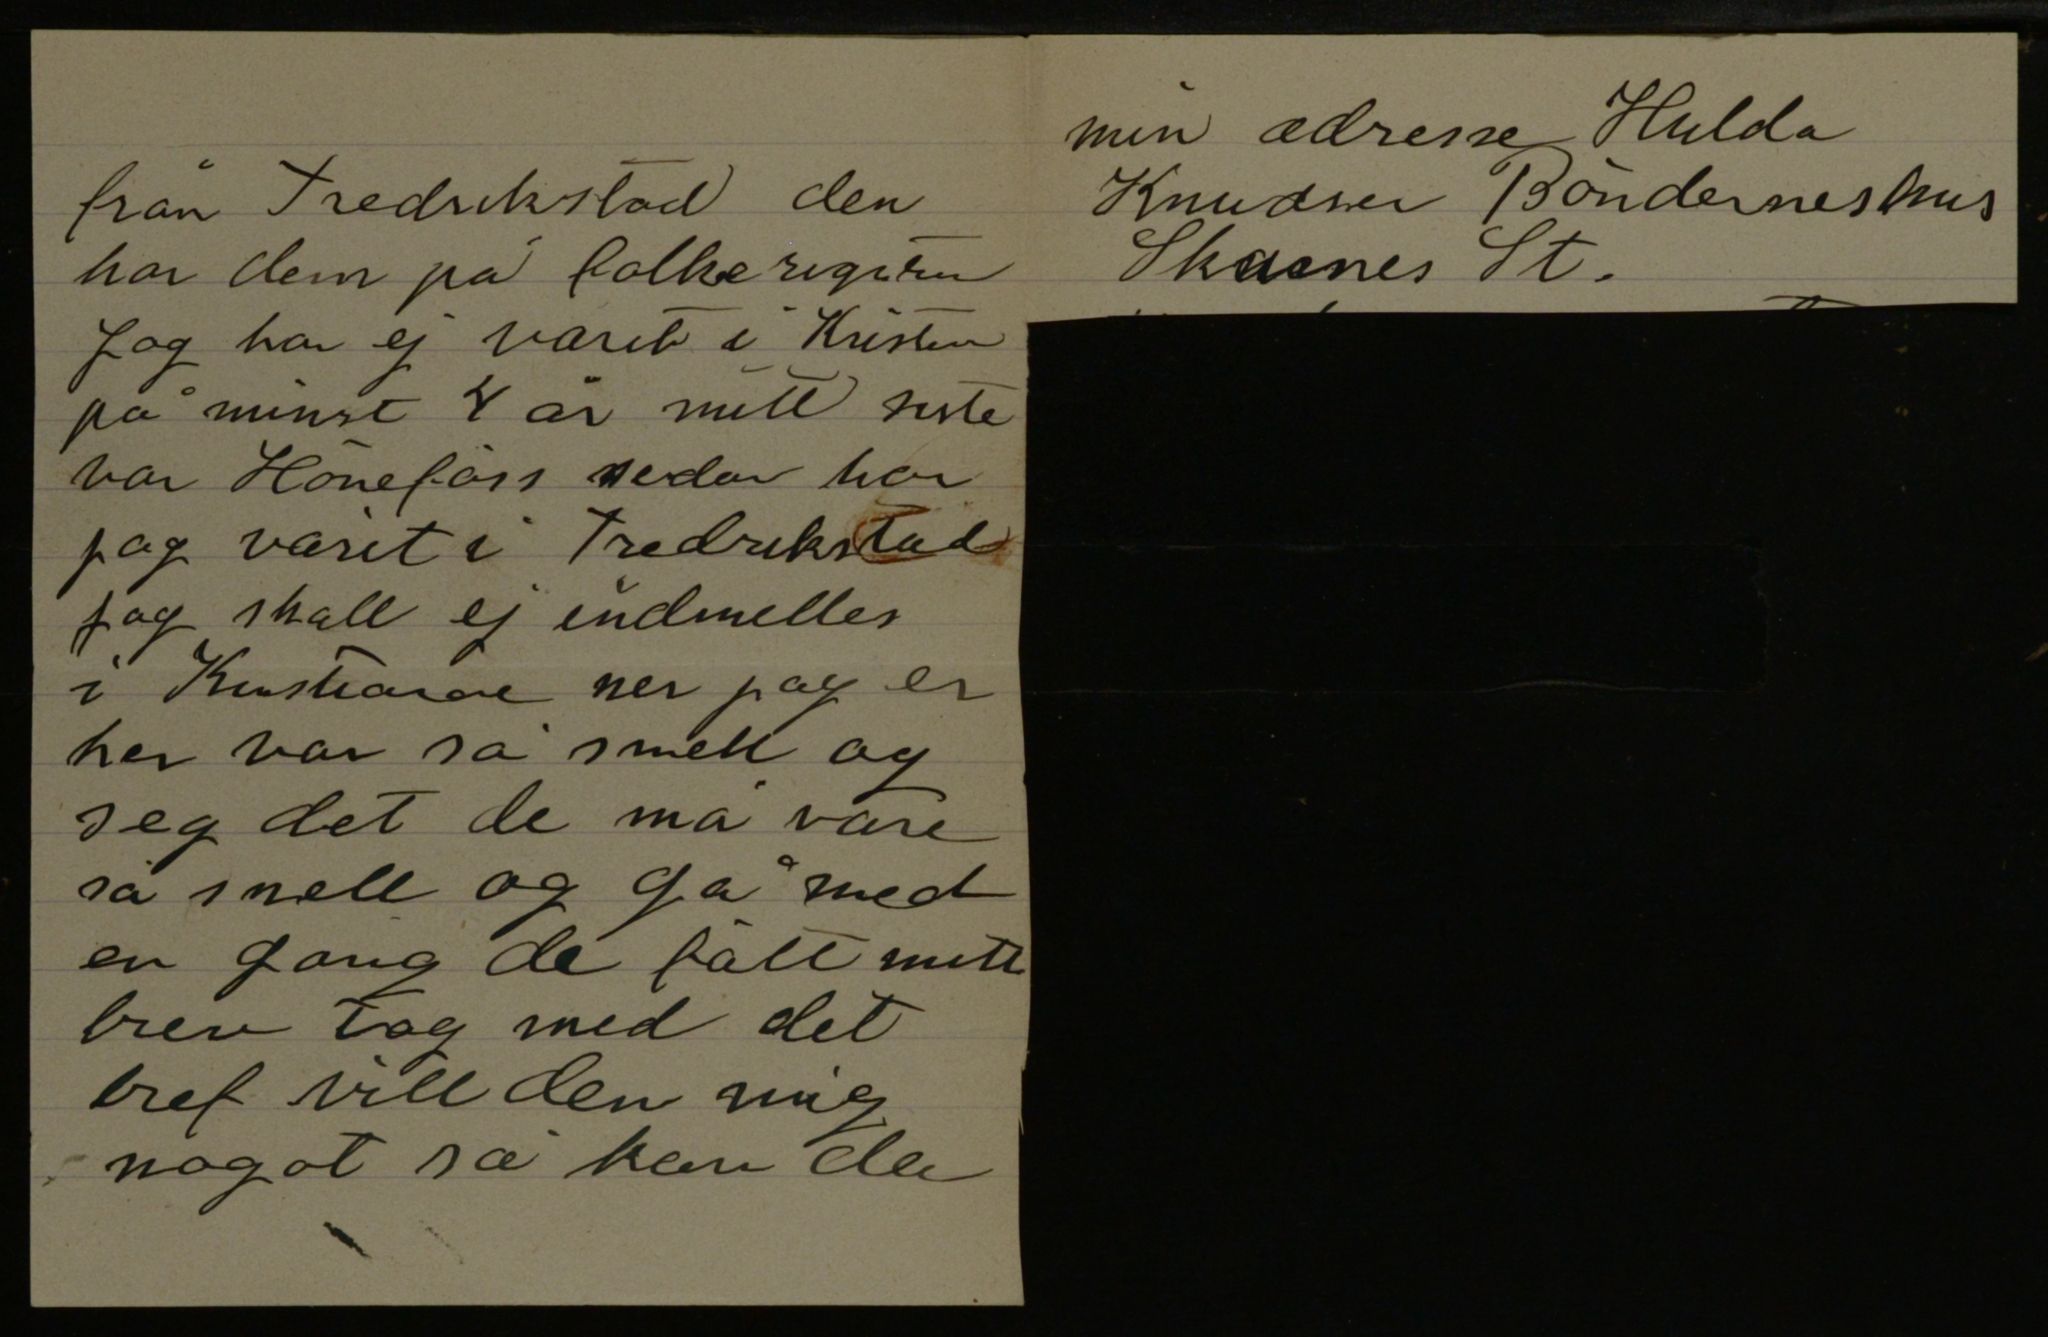 från Fredrikstad den
har dem på folkeregistren
Jag har ej varit i Kristen
på minst 4 år mitt siste
var Hönefåss sedan har
jag varit i Fredrikstad
jag skall ej indmelles
i Kristiania ner jag er
her var så snell og
seg det de må vare
så snell og gå med
en gong de fått mitt
brev tag med det
bref vill den mig
nogot så kan de
min adresse Hulda
Knudsen Böndernes hus
Skarnes St.